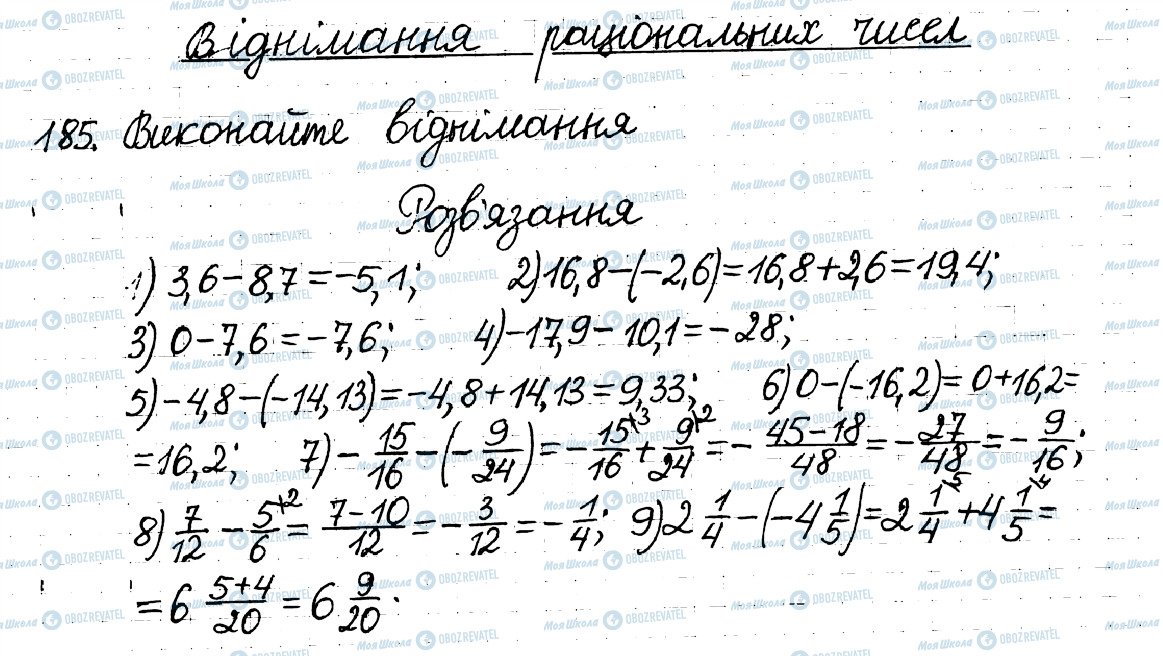 Віднімання раціональних чисел
185. Виконайте віднімання
Розв'язання
1) 3,6 - 8,7 = -5,1; 2) 16,8 - (-2,6) = 16,8 + 2,6 = 19,4;
3) 0 - 7,6 = -7,6; 4) -17,9 - 10,1 = -28;
5) -4,8 - (-14,13) = -4,8 + 14,13 = 9,33; 6) 0 - (-16,2) = 0 + 16,2 =
= 16,2; 7) - 15/16 - (- 9/24) = - 15\3/16 + 9\2/24 = - (45 - 18)/48 = - 27/48 = - 9/16;
8) 7/12 - 5\2/6 = (7 - 10)/12 = - 3/12 = - 1/4; 9) 2 1/4 - (-4 1/5) = 2 1\5/4 + 4 1\4/5 =
= 6 (5 + 4)/20 = 6 9/20.
Моя Школа OBOZREVATEL